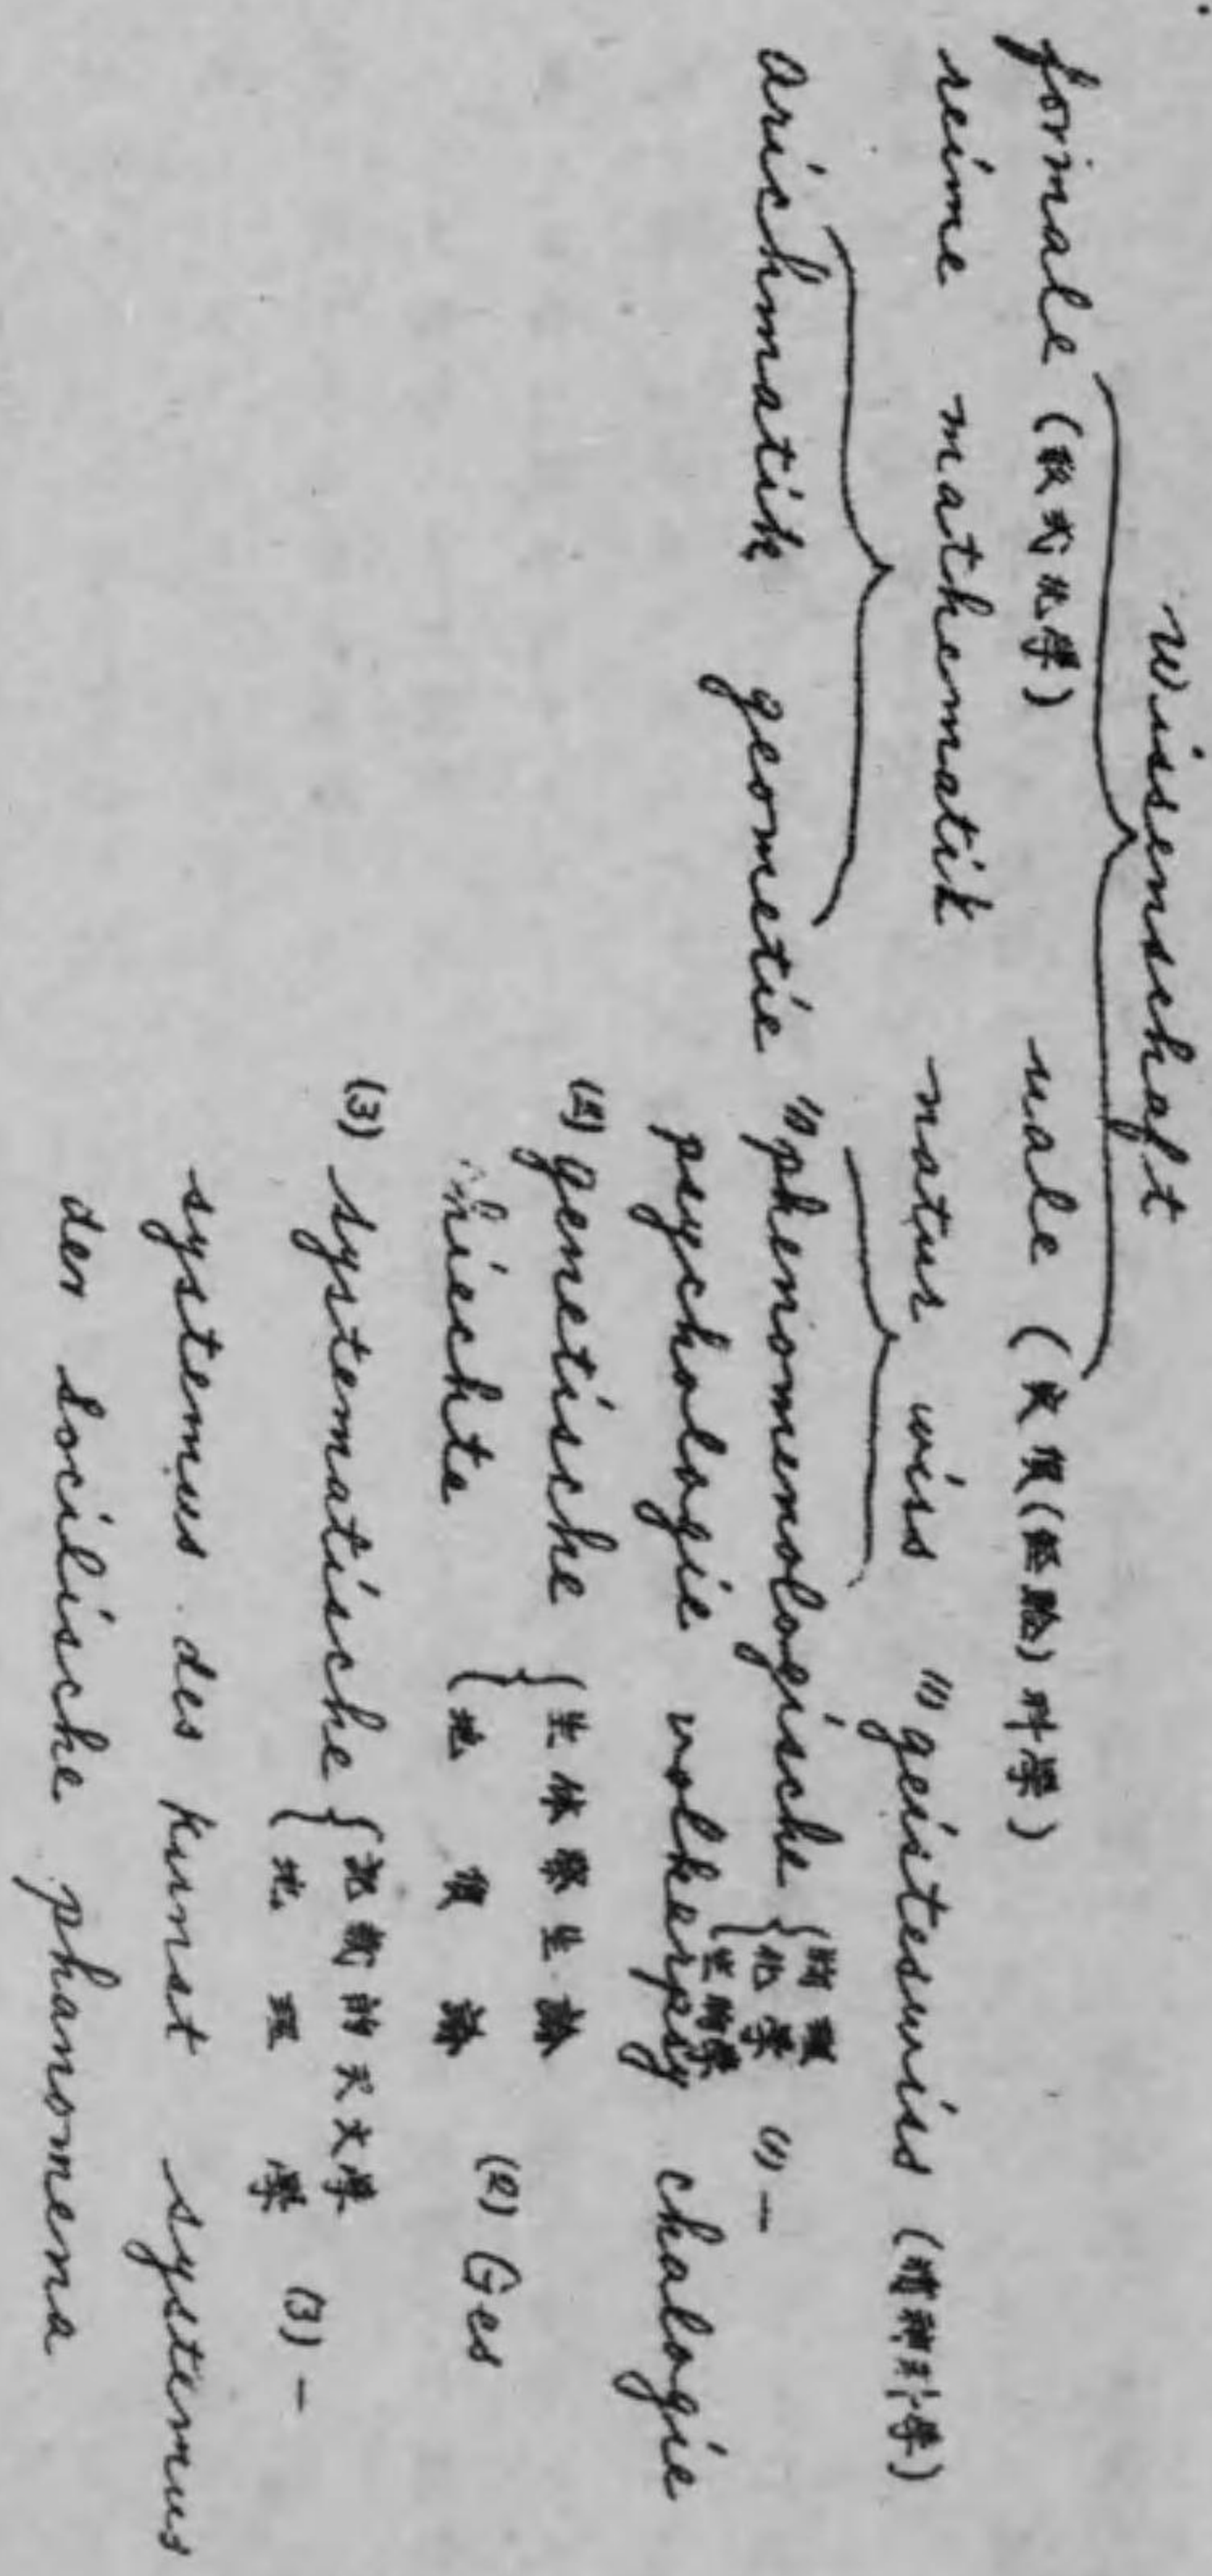 Wissenschaft
formale (
學) reale (
(経驗)科学)
reine mathematik natur wiss (1) geisteswiss (精神科学)
arichmatik geometie (1) phenomenologische { 物理 化学 生物学 (1) —
psychologie volkerpsy chalogie
(2) genetische { 生体発生論
地質論 (2) Ges
hiechte
(3) systematische { 記載的天文学
地理学 (3) —
systemus des kunst systemus
der socilische phanomena